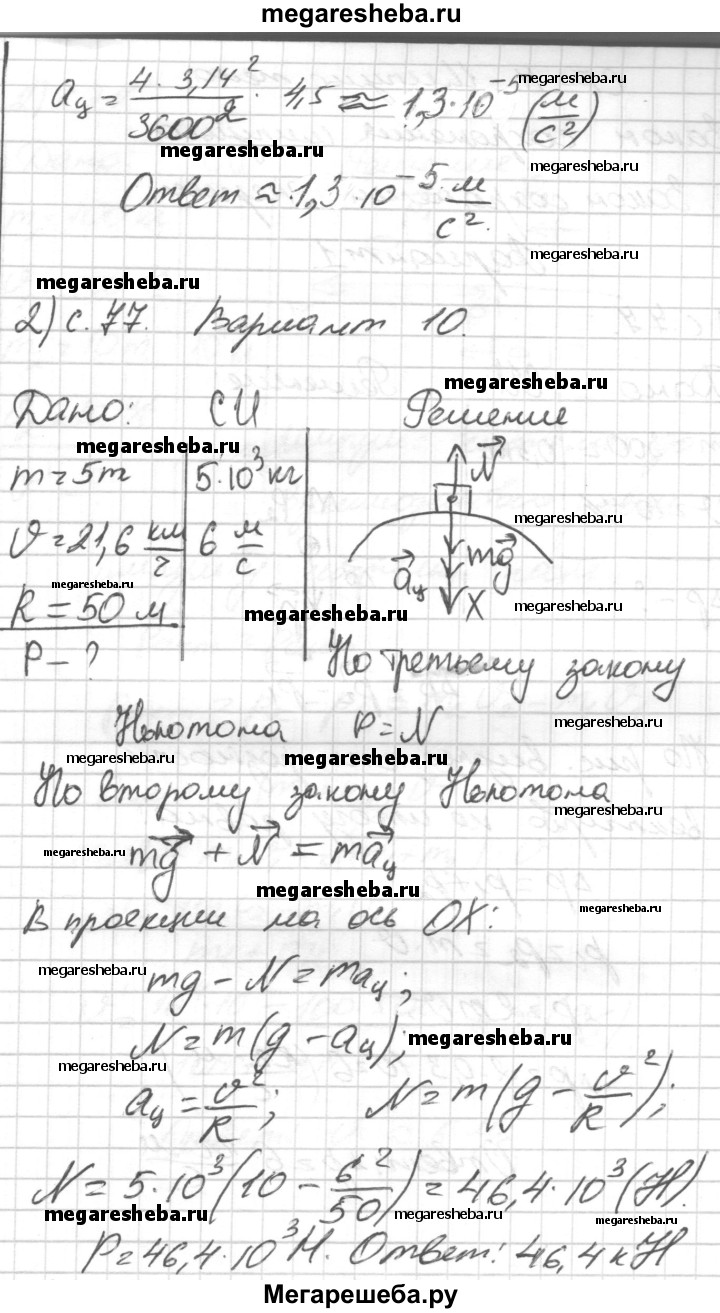 megaresheba.ru
aц = 4 · 3,14² / 3600² · 4,5 ≈ 1,3 · 10⁻⁵ (м/с²)
megaresheba.ru
megaresheba.ru
megaresheba.ru
Ответ ≈ 1,3 · 10⁻⁵ м/с².
megaresheba.ru
megaresheba.ru
2) с. 77. Вариант 10.
megaresheba.ru
Дано: СИ Решение
megaresheba.ru
m = 5 т 5·10³ кг N
megaresheba.ru
υ = 21,6 км/ч 6 м/с mg
aц
megaresheba.ru
megaresheba.ru
R = 50 м X
megaresheba.ru
P - ? По третьему закону
megaresheba.ru
Ньютона P = N
megaresheba.ru
megaresheba.ru
По второму закону Ньютона
megaresheba.ru
megaresheba.ru
mg + N = maц
megaresheba.ru
В проекции на ось OX:
megaresheba.ru
megaresheba.ru
mg - N = maц;
N = m(g - aц);
megaresheba.ru
megaresheba.ru
aц = υ²/R; N = m(g - υ²/R);
N = 5·10³(10 - 6²/50) = 46,4·10³ (Н).
megaresheba.ru
megaresheba.ru
megaresheba.ru
P = 46,4·10³ Н. Ответ: 46,4 кН
Мегарешеба.ру